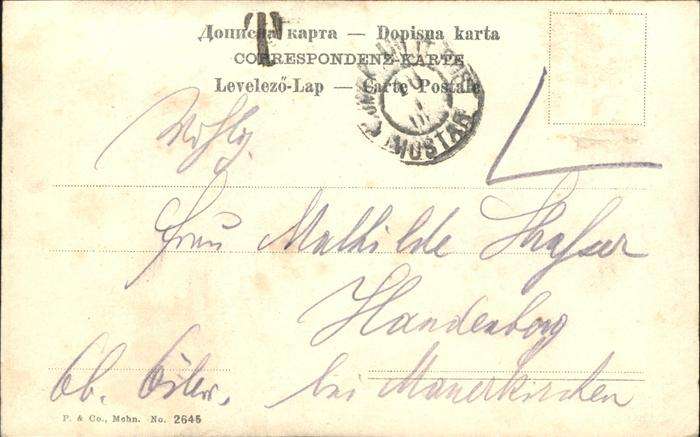 Дописна карта — Dopisna karta
CORRESPONDENZ-KARTE
Levelező-Lap — Carte Postale
T
MOSTAR
Wohlg.
Frau Mathilde
Handenberg
bei Mauerkirchen
Ob. Öster.
P. & Co., Mchn. No. 2645